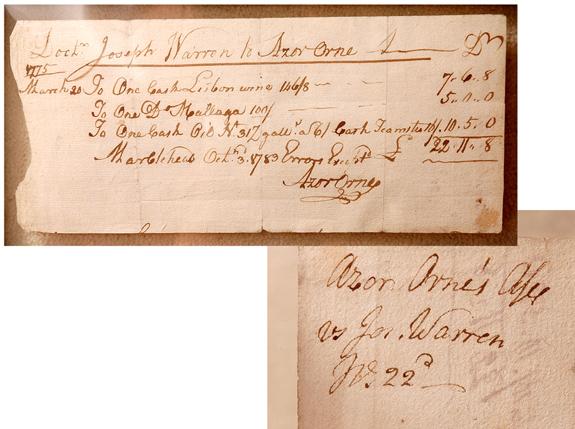 Doctr. Joseph Warren to Azor Orne Dr
1775
March 20 To One Cask Lisbon wine 146/8 7.. 6.. 8
To One Do Mallaga 100/ 5.. 0.. 0
To One Cask Do 31½ galls. a 6/ Cask 10.. 5.. 0
Marblehead Octr. 3d. 1783 Errors Excepd £ 22.. 11.. 8
Azor Orne
Azor Orne's
vs Jos. Warren
No. 22d